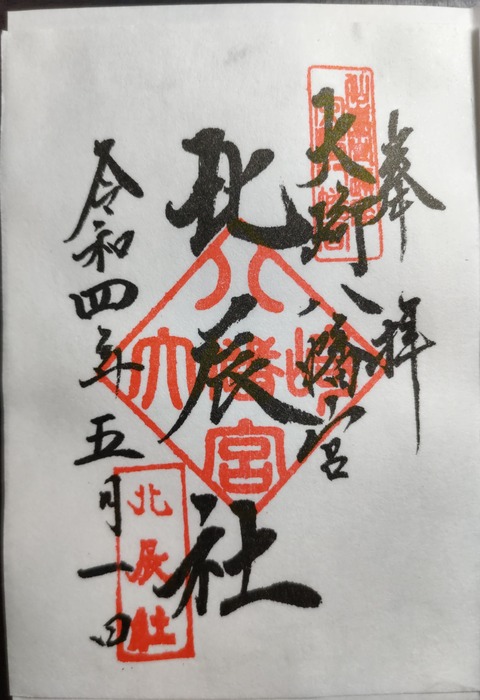 奉拝
大崎八幡宮
北辰社
令和四年五月一日
大崎八幡宮
北辰社